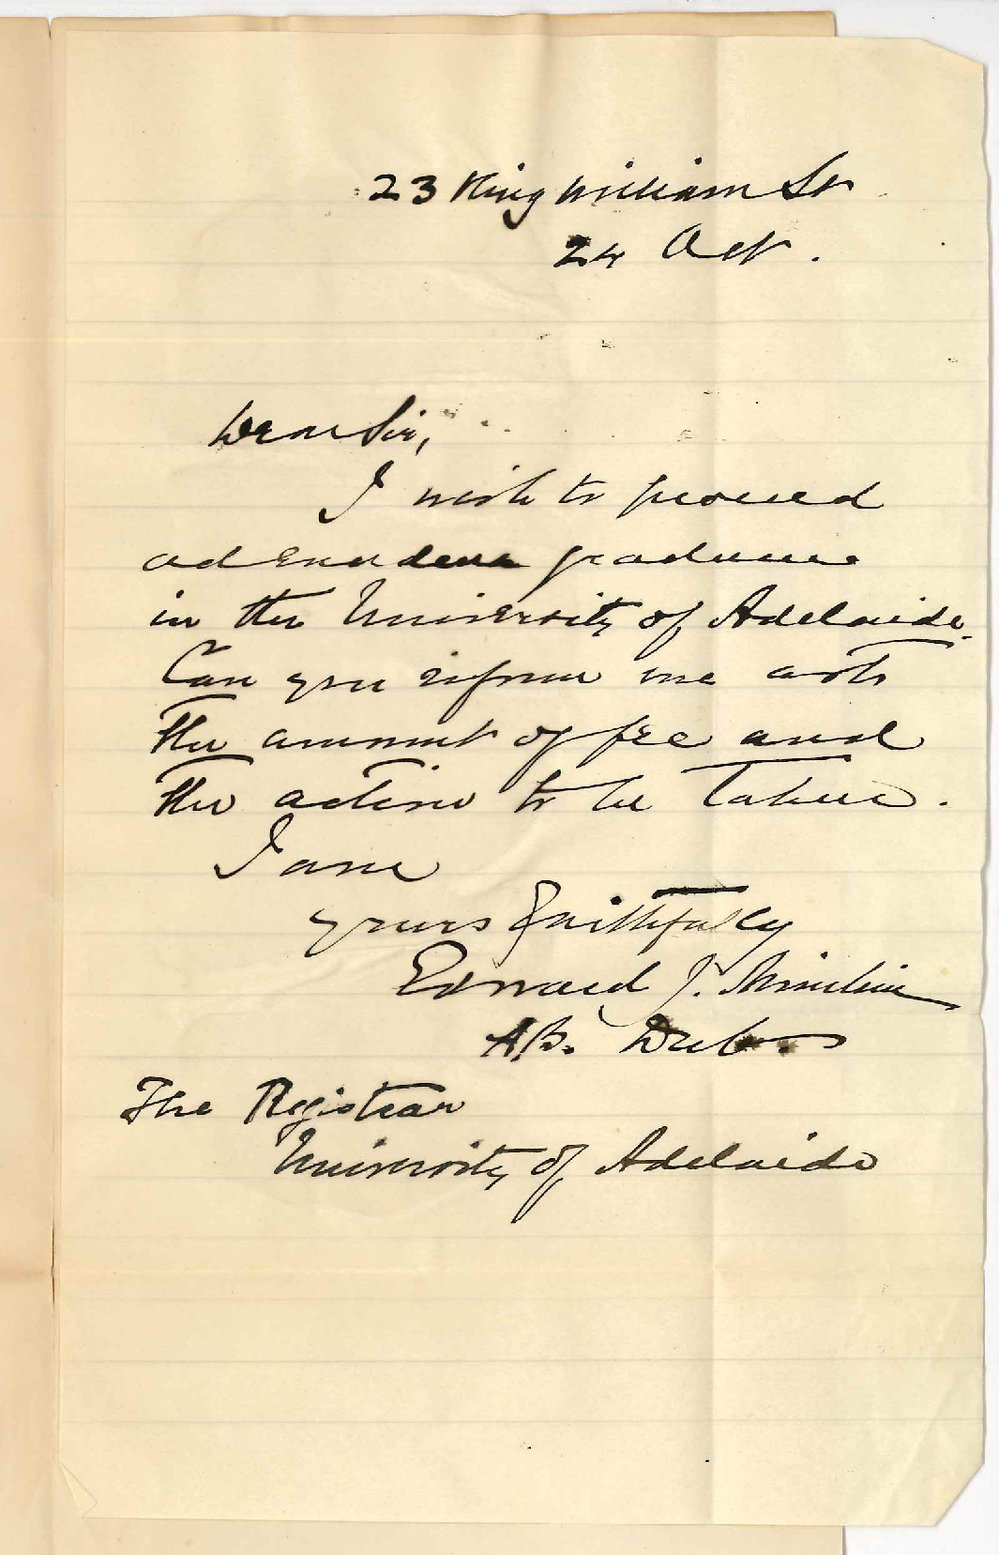 23 King William St
24 Oct.
Dear Sir,
I wish to proceed
ad eundem gradum
in the University of Adelaide.
Can you inform me as to
the amount of fee and
the action to be taken.
I am
yours faithfully
Edward J.
A.B. Dub.
The Registrar
University of Adelaide